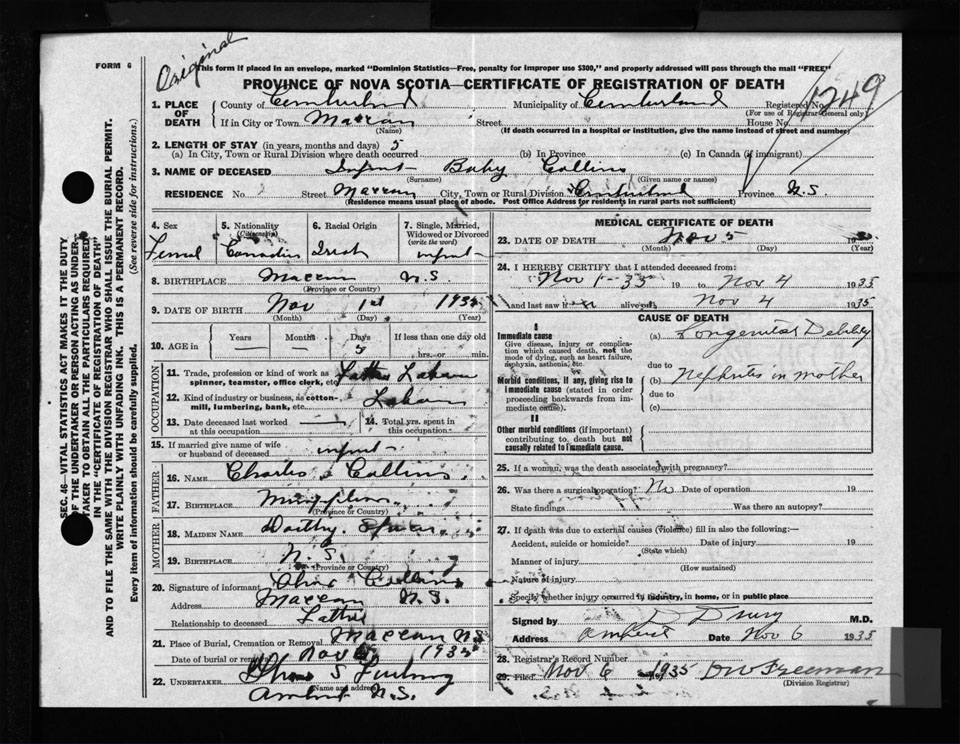 FORM 6
Original
This form if placed in an envelope, marked "Dominion Statistics—Free, penalty for improper use $300," and properly addressed will pass through the mail "FREE"
PROVINCE OF NOVA SCOTIA—CERTIFICATE OF REGISTRATION OF DEATH
1249
1. PLACE OF DEATH
County of Cumberland Municipality of Cumberland Registered No.
(For use of Registrar General only)
If in City or Town Maccan Street House No.
(Name) (If death occurred in a hospital or institution, give the name instead of street and number)
2. LENGTH OF STAY (in years, months and days) 5
(a) In City, Town or Rural Division where death occurred (b) In Province (c) In Canada (if immigrant)
3. NAME OF DECEASED Infant Baby Collins
(Surname) (Given name or names)
RESIDENCE No. Street Maccan City, Town or Rural Division Cumberland Province N.S
(Residence means usual place of abode. Post Office Address for residents in rural parts not sufficient)
4. Sex 5. Nationality (Citizenship) 6. Racial Origin 7. Single, Married, Widowed or Divorced (write the word)
Femal Canadian Irish infant
8. BIRTHPLACE Maccan N.S
(Province or Country)
9. DATE OF BIRTH Nov 1st 1935
(Month) (Day) (Year)
10. AGE in Years Months Days If less than one day old
5 hrs. or min.
OCCUPATION
11. Trade, profession or kind of work as spinner, teamster, office clerk, etc.
12. Kind of industry or business, as cotton-mill, lumbering, bank, etc.
13. Date deceased last worked at this occupation
14. Total yrs. spent in this occupation
15. If married give name of wife or husband of deceased infant
FATHER
16. NAME Charles Collins
17. BIRTHPLACE
(Province or Country)
MOTHER
18. MAIDEN NAME
19. BIRTHPLACE N.S
(Province or Country)
20. Signature of informant Collins
Address Maccan N.S.
Relationship to deceased Father
21. Place of Burial, Cremation or Removal Maccan N.S
Date of burial or removal Nov 1935
22. UNDERTAKER
(Name and address)
Amherst N.S.
MEDICAL CERTIFICATE OF DEATH
23. DATE OF DEATH Nov 5 193
(Month) (Day) (Year)
24. I HEREBY CERTIFY that I attended deceased from:
Nov 1-35 19 to Nov 4 1935
and last saw alive on Nov 4 1935
CAUSE OF DEATH
I
Immediate cause
Give disease, injury or complication which caused death, not the mode of dying, such as heart failure, asphyxia, asthenia, etc.
(a) Congenital Debility
due to
Morbid conditions, if any, giving rise to immediate cause (stated in order proceeding backwards from immediate cause).
(b) Nephritis in mother
due to
(c)
II
Other morbid conditions (if important) contributing to death but not causally related to immediate cause.
25. If a woman, was the death associated with pregnancy?
26. Was there a surgical operation? No Date of operation 19
State findings Was there an autopsy?
27. If death was due to external causes (violence) fill in also the following:—
Accident, suicide or homicide? Date of injury 19
(State which)
Manner of injury
(How sustained)
Nature of injury
Specify whether injury occurred in industry, in home, or in public place
Signed by D Drury M.D.
Address Amherst Date Nov 6 1935
28. Registrar's Record Number
29. Filed Nov 6 1935 DW Freeman
(Division Registrar)
SEC. 46—C. VITAL STATISTICS ACT MAKES IT THE DUTY
OF THE UNDERTAKER OR PERSON ACTING AS UNDERTAKER TO OBTAIN ALL THE PARTICULARS REQUIRED
IN THE "CERTIFICATE OF REGISTRATION OF DEATH"
AND TO FILE THE SAME WITH THE DIVISION REGISTRAR WHO SHALL ISSUE THE BURIAL PERMIT.
WRITE PLAINLY WITH UNFADING INK. THIS IS A PERMANENT RECORD.
Every item of information should be carefully supplied. (See reverse side for instructions.)